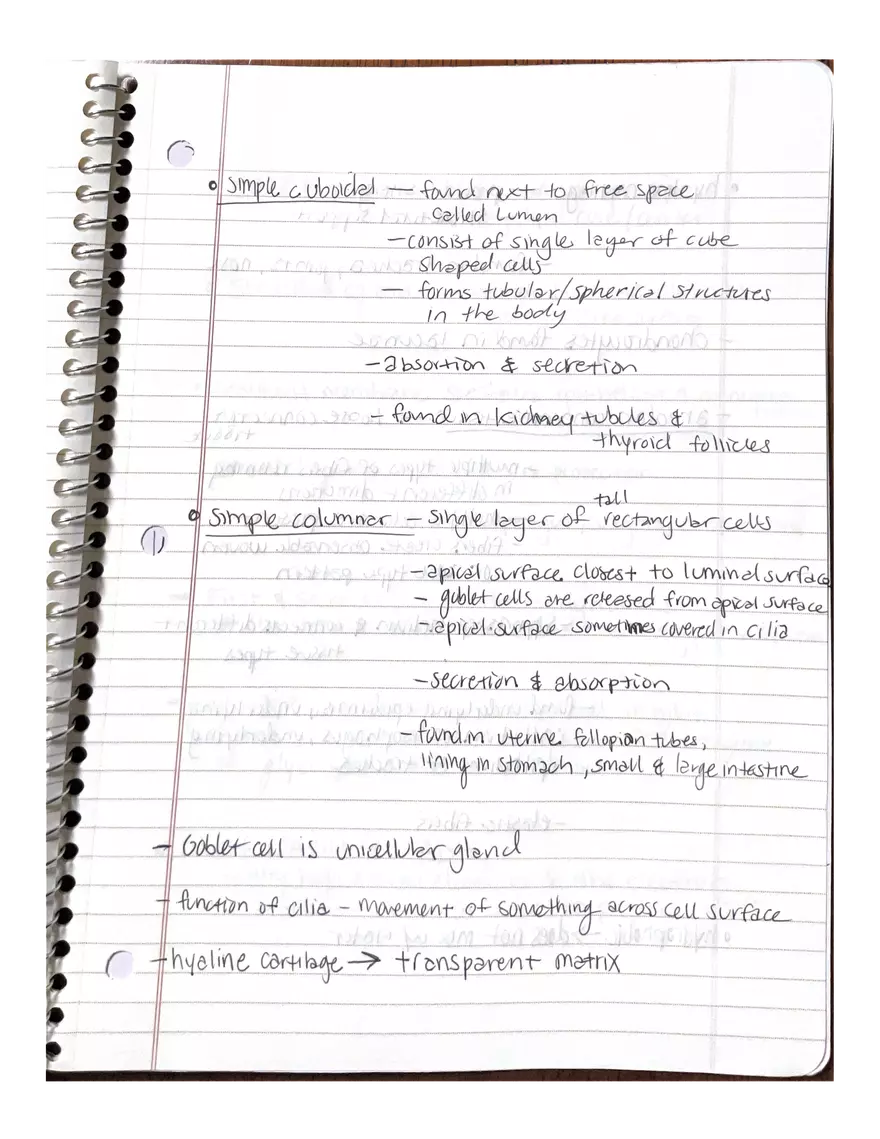 simple cuboidal — found next to free space
called lumen
- consist of single layer of cube
shaped cells
- forms tubular/spherical structures
in the body
- absortion & secretion
- found in kidney tubules &
thyroid follicles
tall
simple columnar - single layer of rectangular cells
- apical surface closest to luminal surface
- goblet cells are released from apical surface
- apical surface sometimes covered in cilia
- secretion & absorption
- found in uterine fallopian tubes,
lining in stomach, small & large intestine
- Goblet cell is unicellular gland
- function of cilia - movement of something across cell surface
- hyaline cartilage → transparent matrix